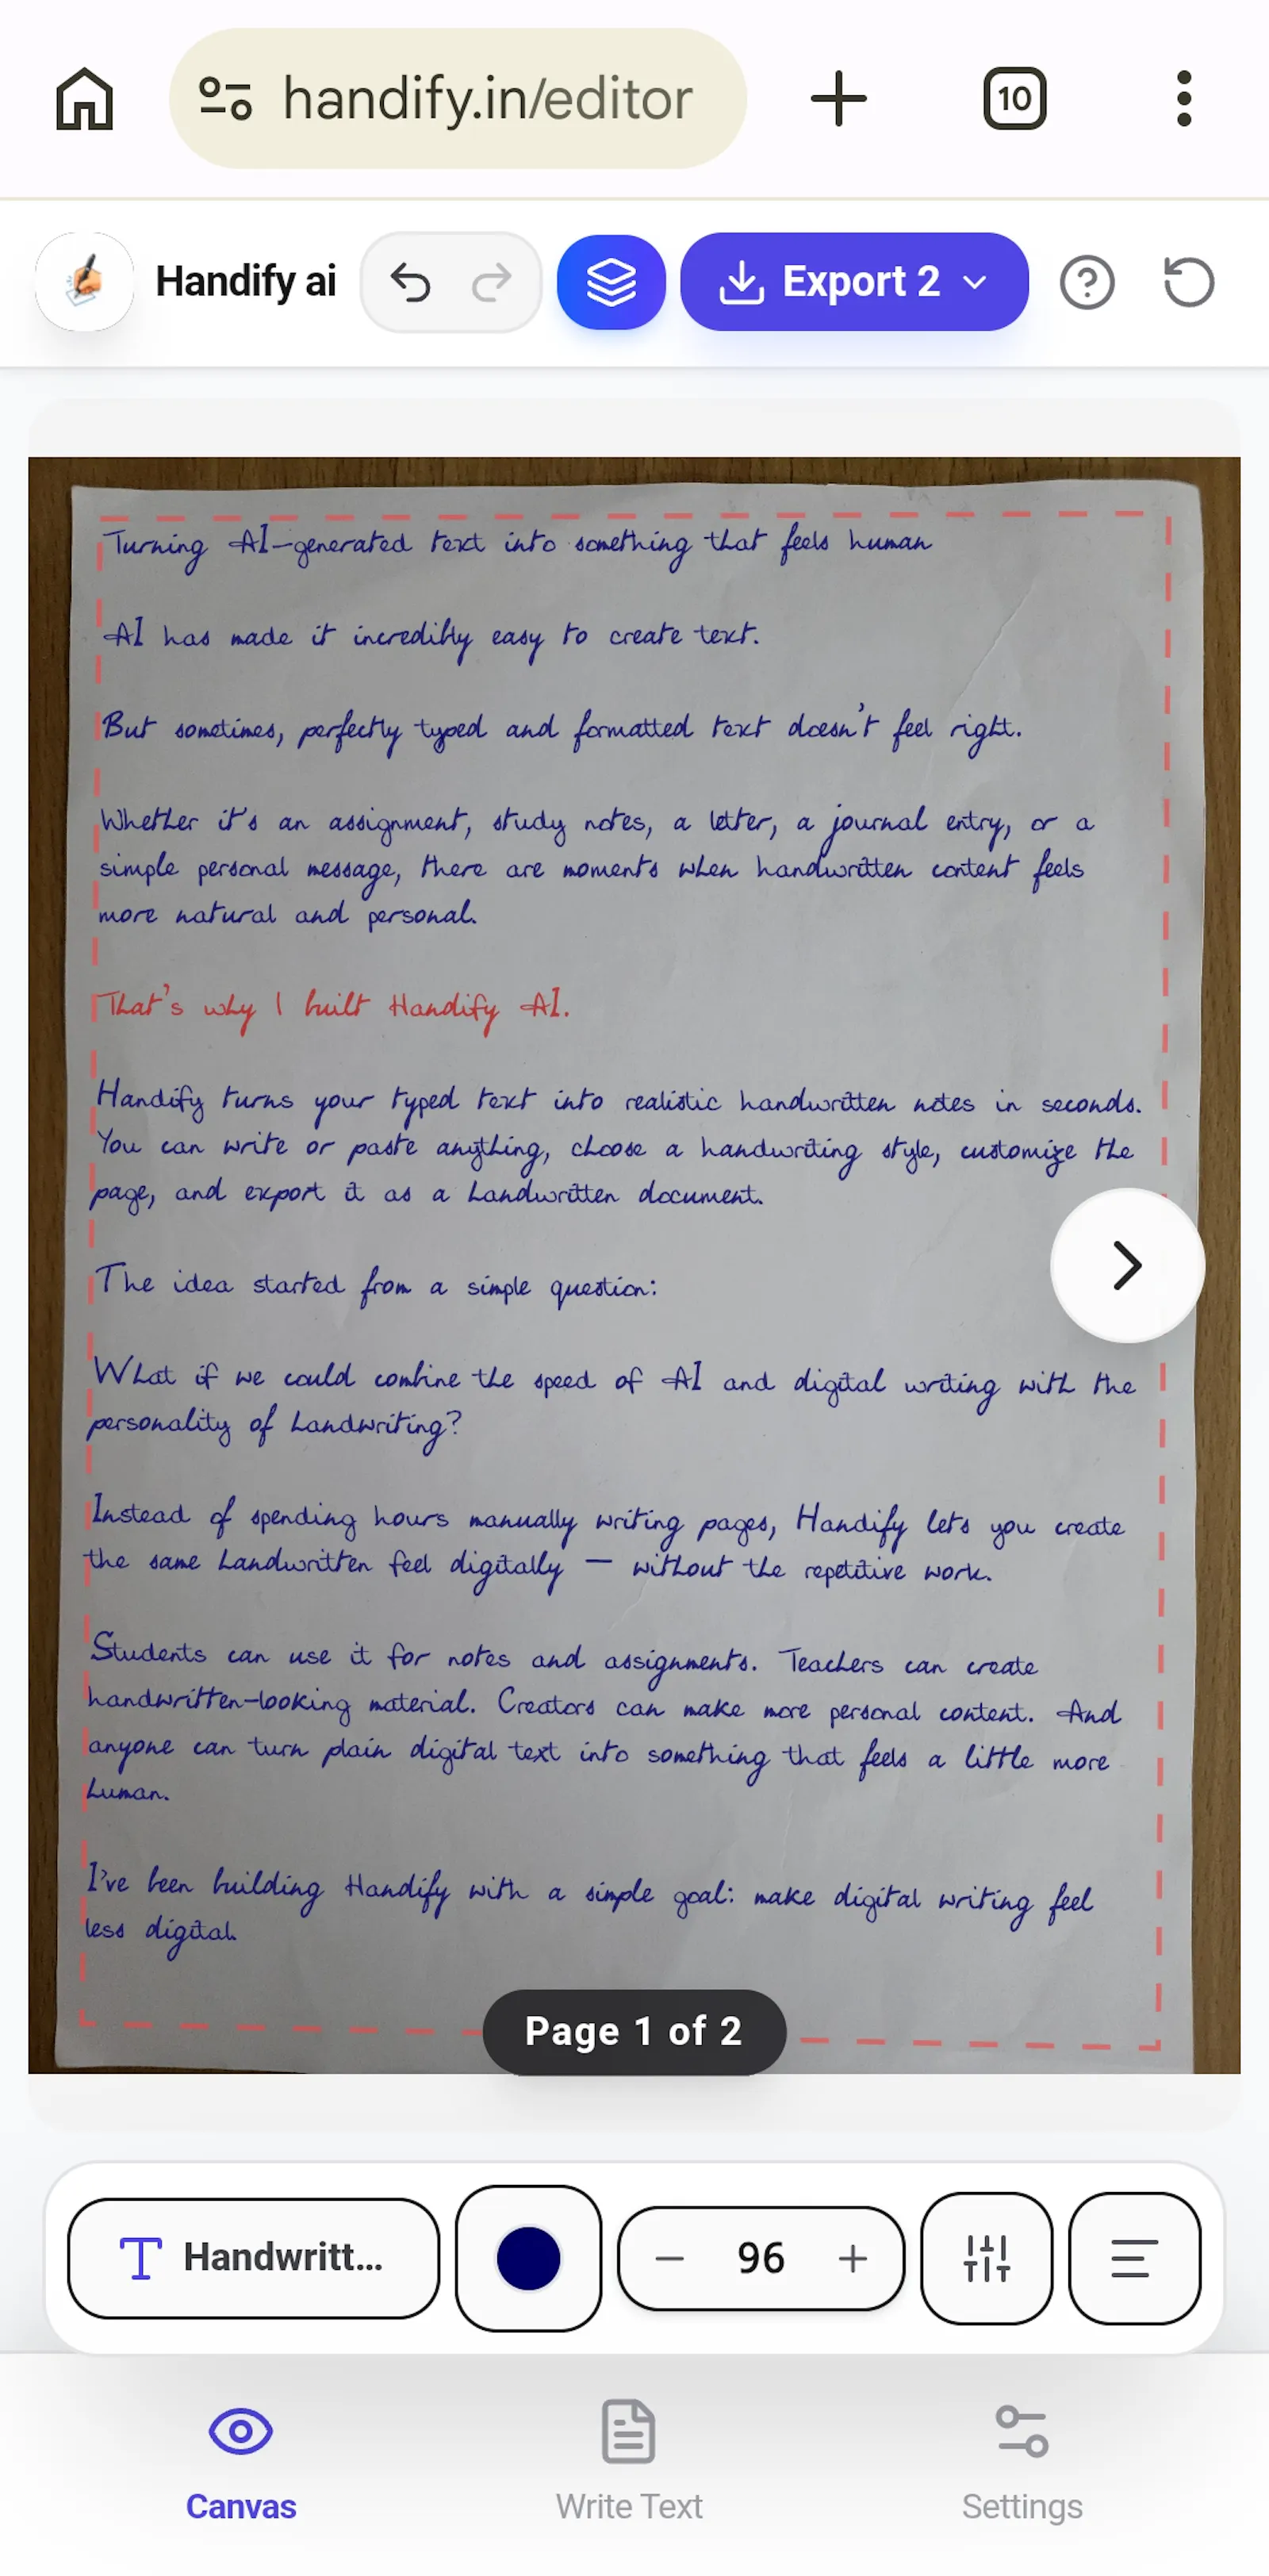 handify.in/editor
10
Handify ai
Export 2
Turning AI-generated text into something that feels human
AI has made it incredibly easy to create text.
But sometimes, perfectly typed and formatted text doesn't feel right.
Whether it's an assignment, study notes, a letter, a journal entry, or a
simple personal message, there are moments when handwritten content feels
more natural and personal.
That's why I built Handify AI.
Handify turns your typed text into realistic handwritten notes in seconds.
You can write or paste anything, choose a handwriting style, customize the
page, and export it as a handwritten document.
The idea started from a simple question:
What if we could combine the speed of AI and digital writing with the
personality of handwriting?
Instead of spending hours manually writing pages, Handify lets you create
the same handwritten feel digitally — without the repetitive work.
Students can use it for notes and assignments. Teachers can create
handwritten-looking material. Creators can make more personal content. And
anyone can turn plain digital text into something that feels a little more
human.
I've been building Handify with a simple goal: make digital writing feel
less digital.
Page 1 of 2
Handwritt...
96
Canvas
Write Text
Settings